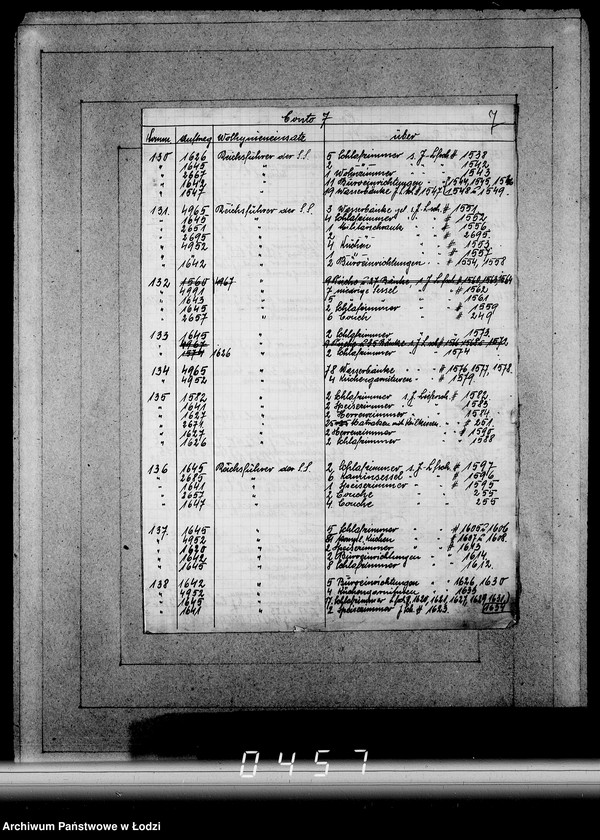 Conto 7 7
Auftrag Wolhynieneinsatz über
130 1626 Reichsführer der S.S. 5 Schlafzimmer s. J. Lfsch # 1538
" 1645 " 2 " " " # 1542
" 2667 " 1 Wohnzimmer " " 1543
" 1642 " 11 Büroeinrichtungen " " 1544, 1545,
" 1547 " 19 Wasserbänke 1547 1548 1549
131. 4965 Reichsführer der S.S. 3 Wasserbänke # 1551
" 1645 " 4 Schlafzimmer " # 1552
" 2651 " 1 Militärschrank " # 1556
" 2695 " 2 " " # 2695
" 4952 " 4 Küchen " # 1553
" 1 " # 1557
" 1642 " 2 Büroeinrichtungen " # 1554, 4558
132 1565 4967
" 4991 " 7 niedrige Sessel " # 1562
" 1643 " 15 " " 1561
" 1645 " 2 Schlafzimmer " # 1559
" 2657 " 6 Couch " # 249
133 1645 " 2 Schlafzimmer " 1573.
" 4967
" 1574 1626 " 2 Schlafzimmer " 1574
134 4965 " 78 Wasserbänke " # 1576, 1577, 1578.
" 4952 " 4 Küchengarnituren " # 1579.
135 1582 " 2 Schlafzimmer # 1582
" 1641 " 2 Speisezimmer " # 1583
" 1627 " 2 Herrenzimmer " # 1584
" 2671 " # 251
" 1627 " 2 Herrenzimmer " #
" 1626 " 2 Schlafzimmer " 1588
136 1645 Reichsführer der S.S. 2 Schlafzimmer s. J. Lfsch # 1597
" 2685 " 6 Kaminsessel " # 1596
" 1641 " 1 Speisezimmer " # 1595
" 2657 " 2 Couche " 255
" 1647 " 4 Couche 255
137. 1645 " 5 Schlafzimmer " # 1605 1606
" 4952 " Küchen " # 1607 1608.
" 1620 " 2 Speisezimmer " # 1643
" 1642 " 2 Büroeinrichtungen " 1614.
" 1645 " 8 Schlafzimmer " # 1612.
138 1642 " 5 Büroeinrichtungen " 1626, 1630
" 4952 " 4 Küchengarnituren " # 1633
" 1645 " 17 Schlafzimmer 1620, 1621, 1627, 1629, 1631,
" 1641 " 2 Speisezimmer # 1623 1634
0457
Archiwum Państwowe w Łodzi